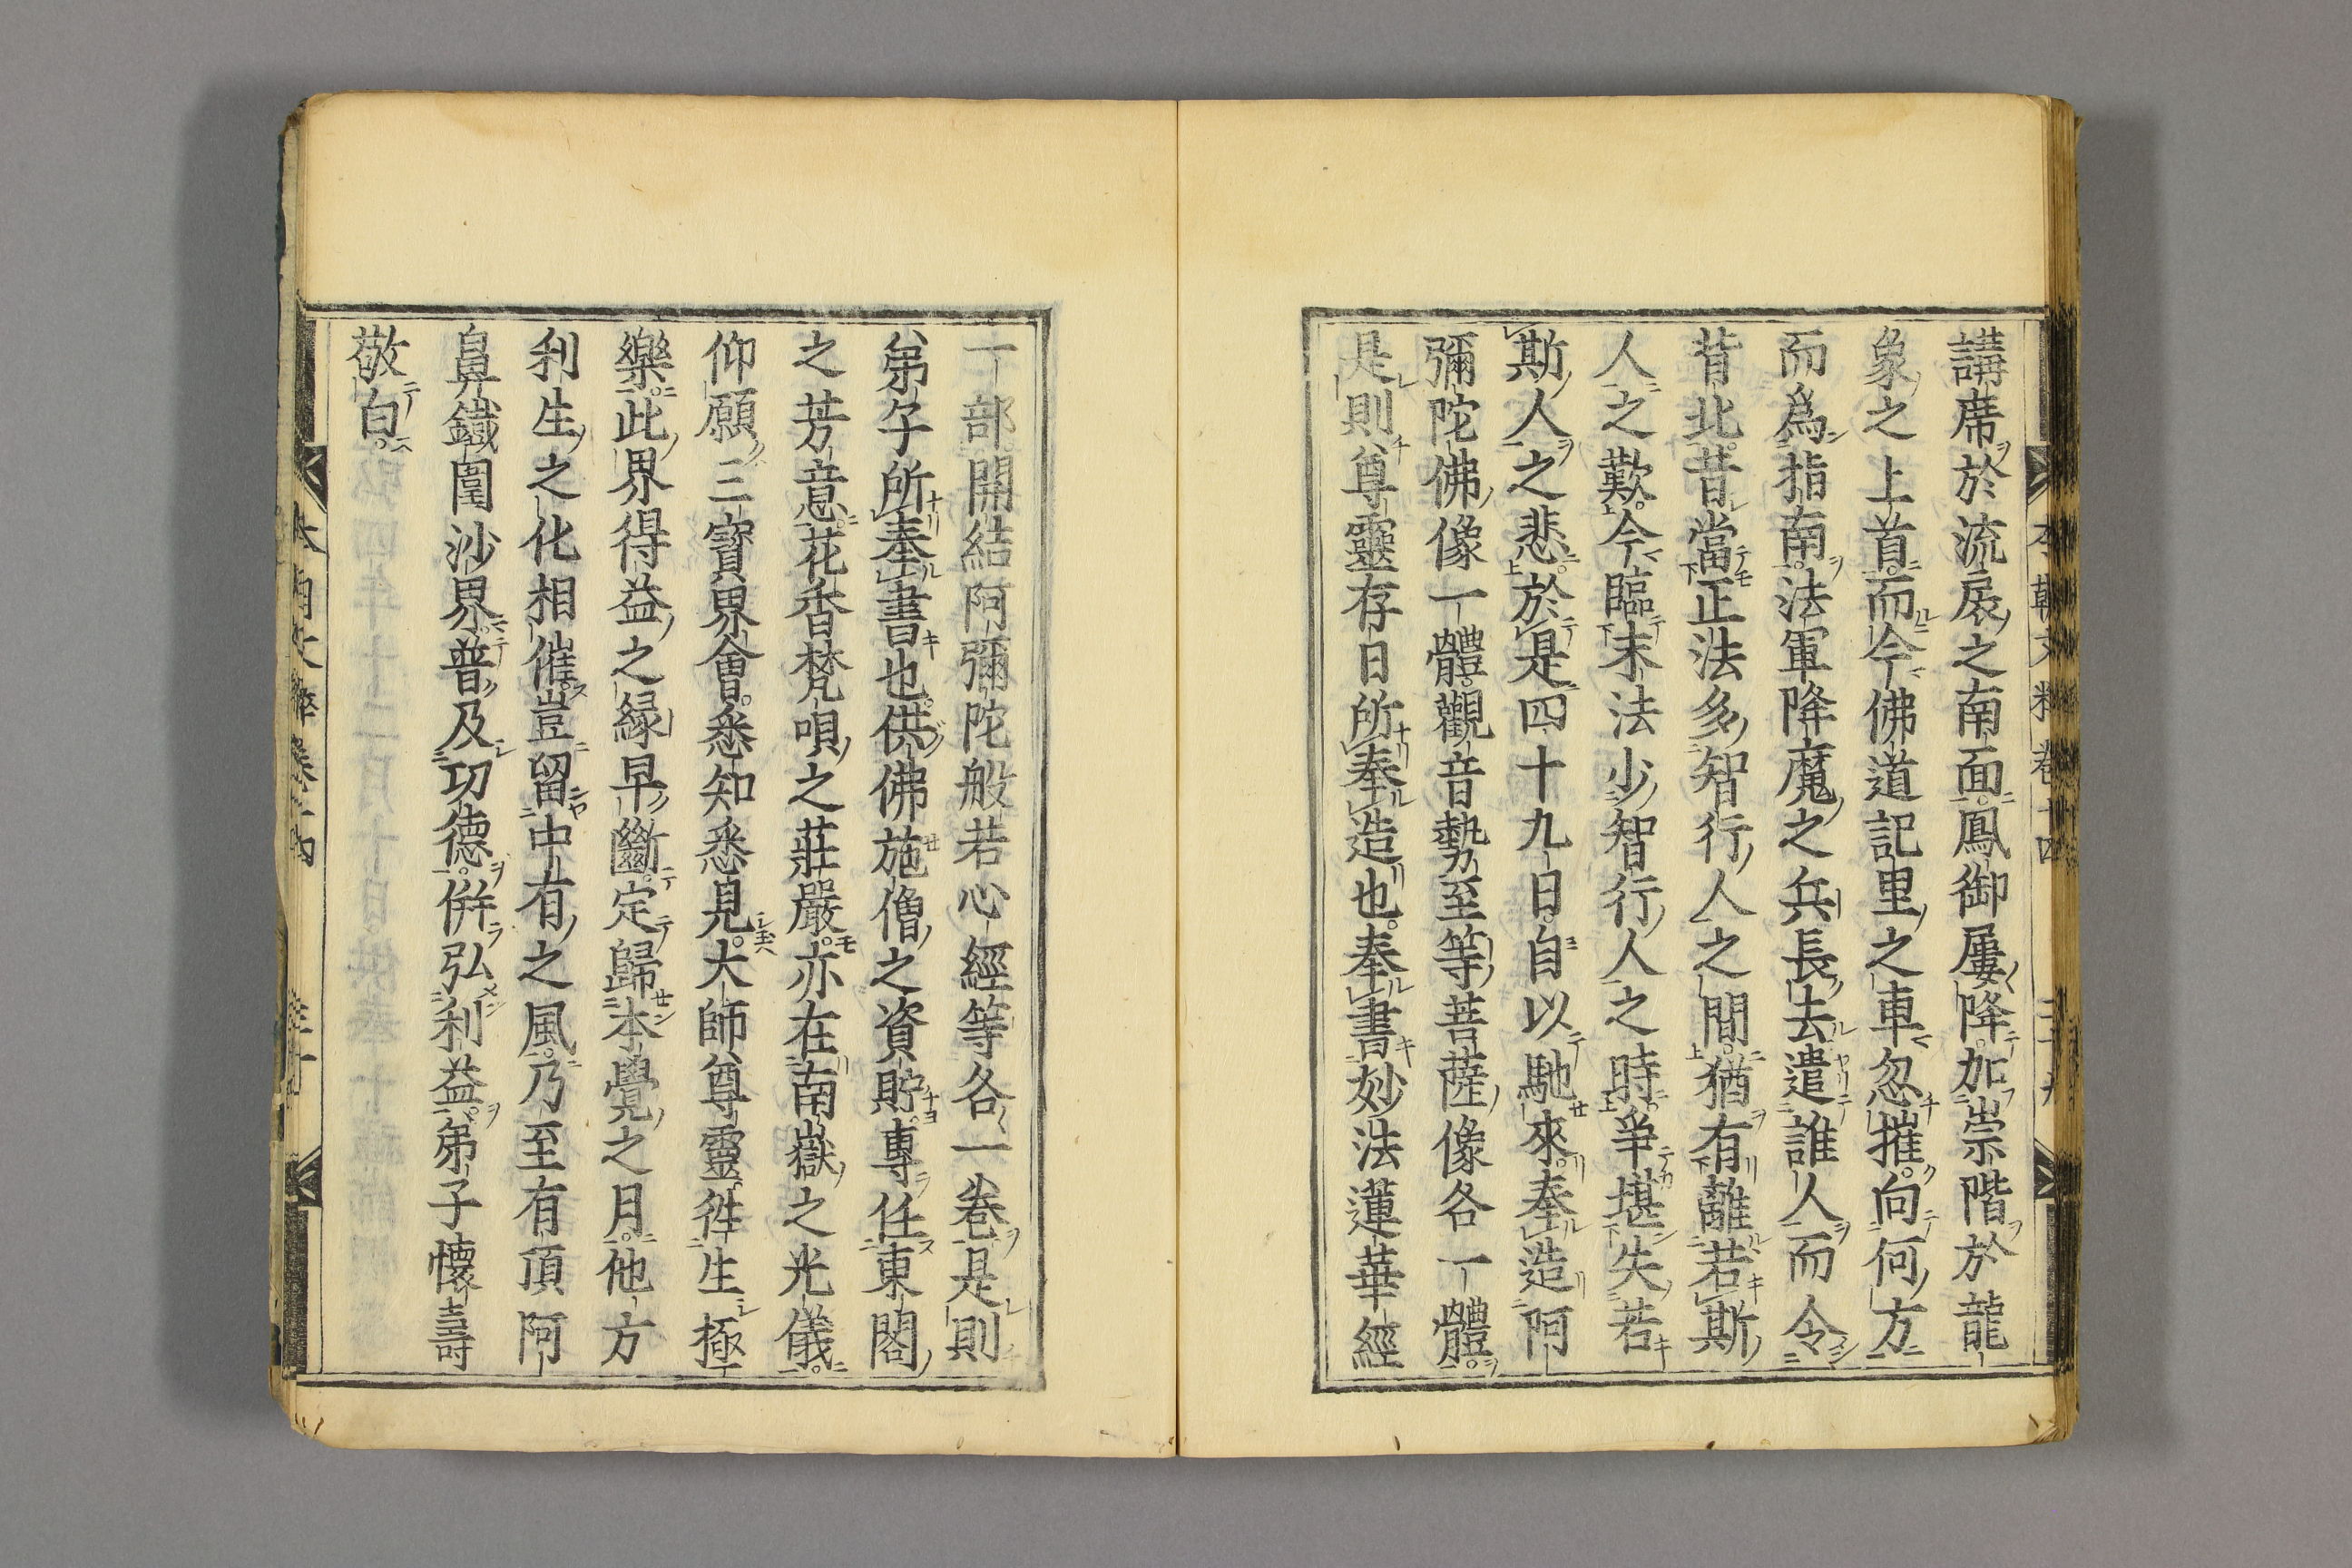 講席於流扆之南面鳳御屢降加崇階於龍
象之上首而今佛道記里之車忽摧向何方
而爲指南法軍降魔之兵長去遣誰人而令
背北昔當正法多智行人之間猶有離若斯
人之歎今臨末法少智行人之時爭堪失若
斯人之悲於是四十九日自以馳來奉造阿
彌陀佛像一體觀音勢至等菩薩像各一體
是則尊靈存日所奉造也奉書妙法蓮華經
一部開結阿彌陀般若心經等各一卷是則
弟子所奉書也供佛施僧之資貯專任東閣
之芳意花香梵唄之莊嚴亦在南嶽之光儀
仰願三寳界會悉知悉見大師尊靈徃生極
樂此界得益之縁早斷定歸本覺之月他方
利生之化相催豈留中有之風乃至有頂阿
鼻鐵圍沙界普及功德併弘利益弟子懷壽
敬白